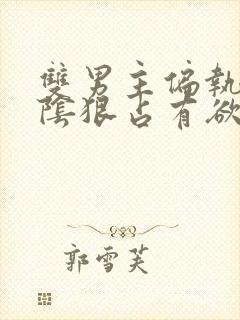 雙男主偏執
陰狠占有欲
郭雪芙